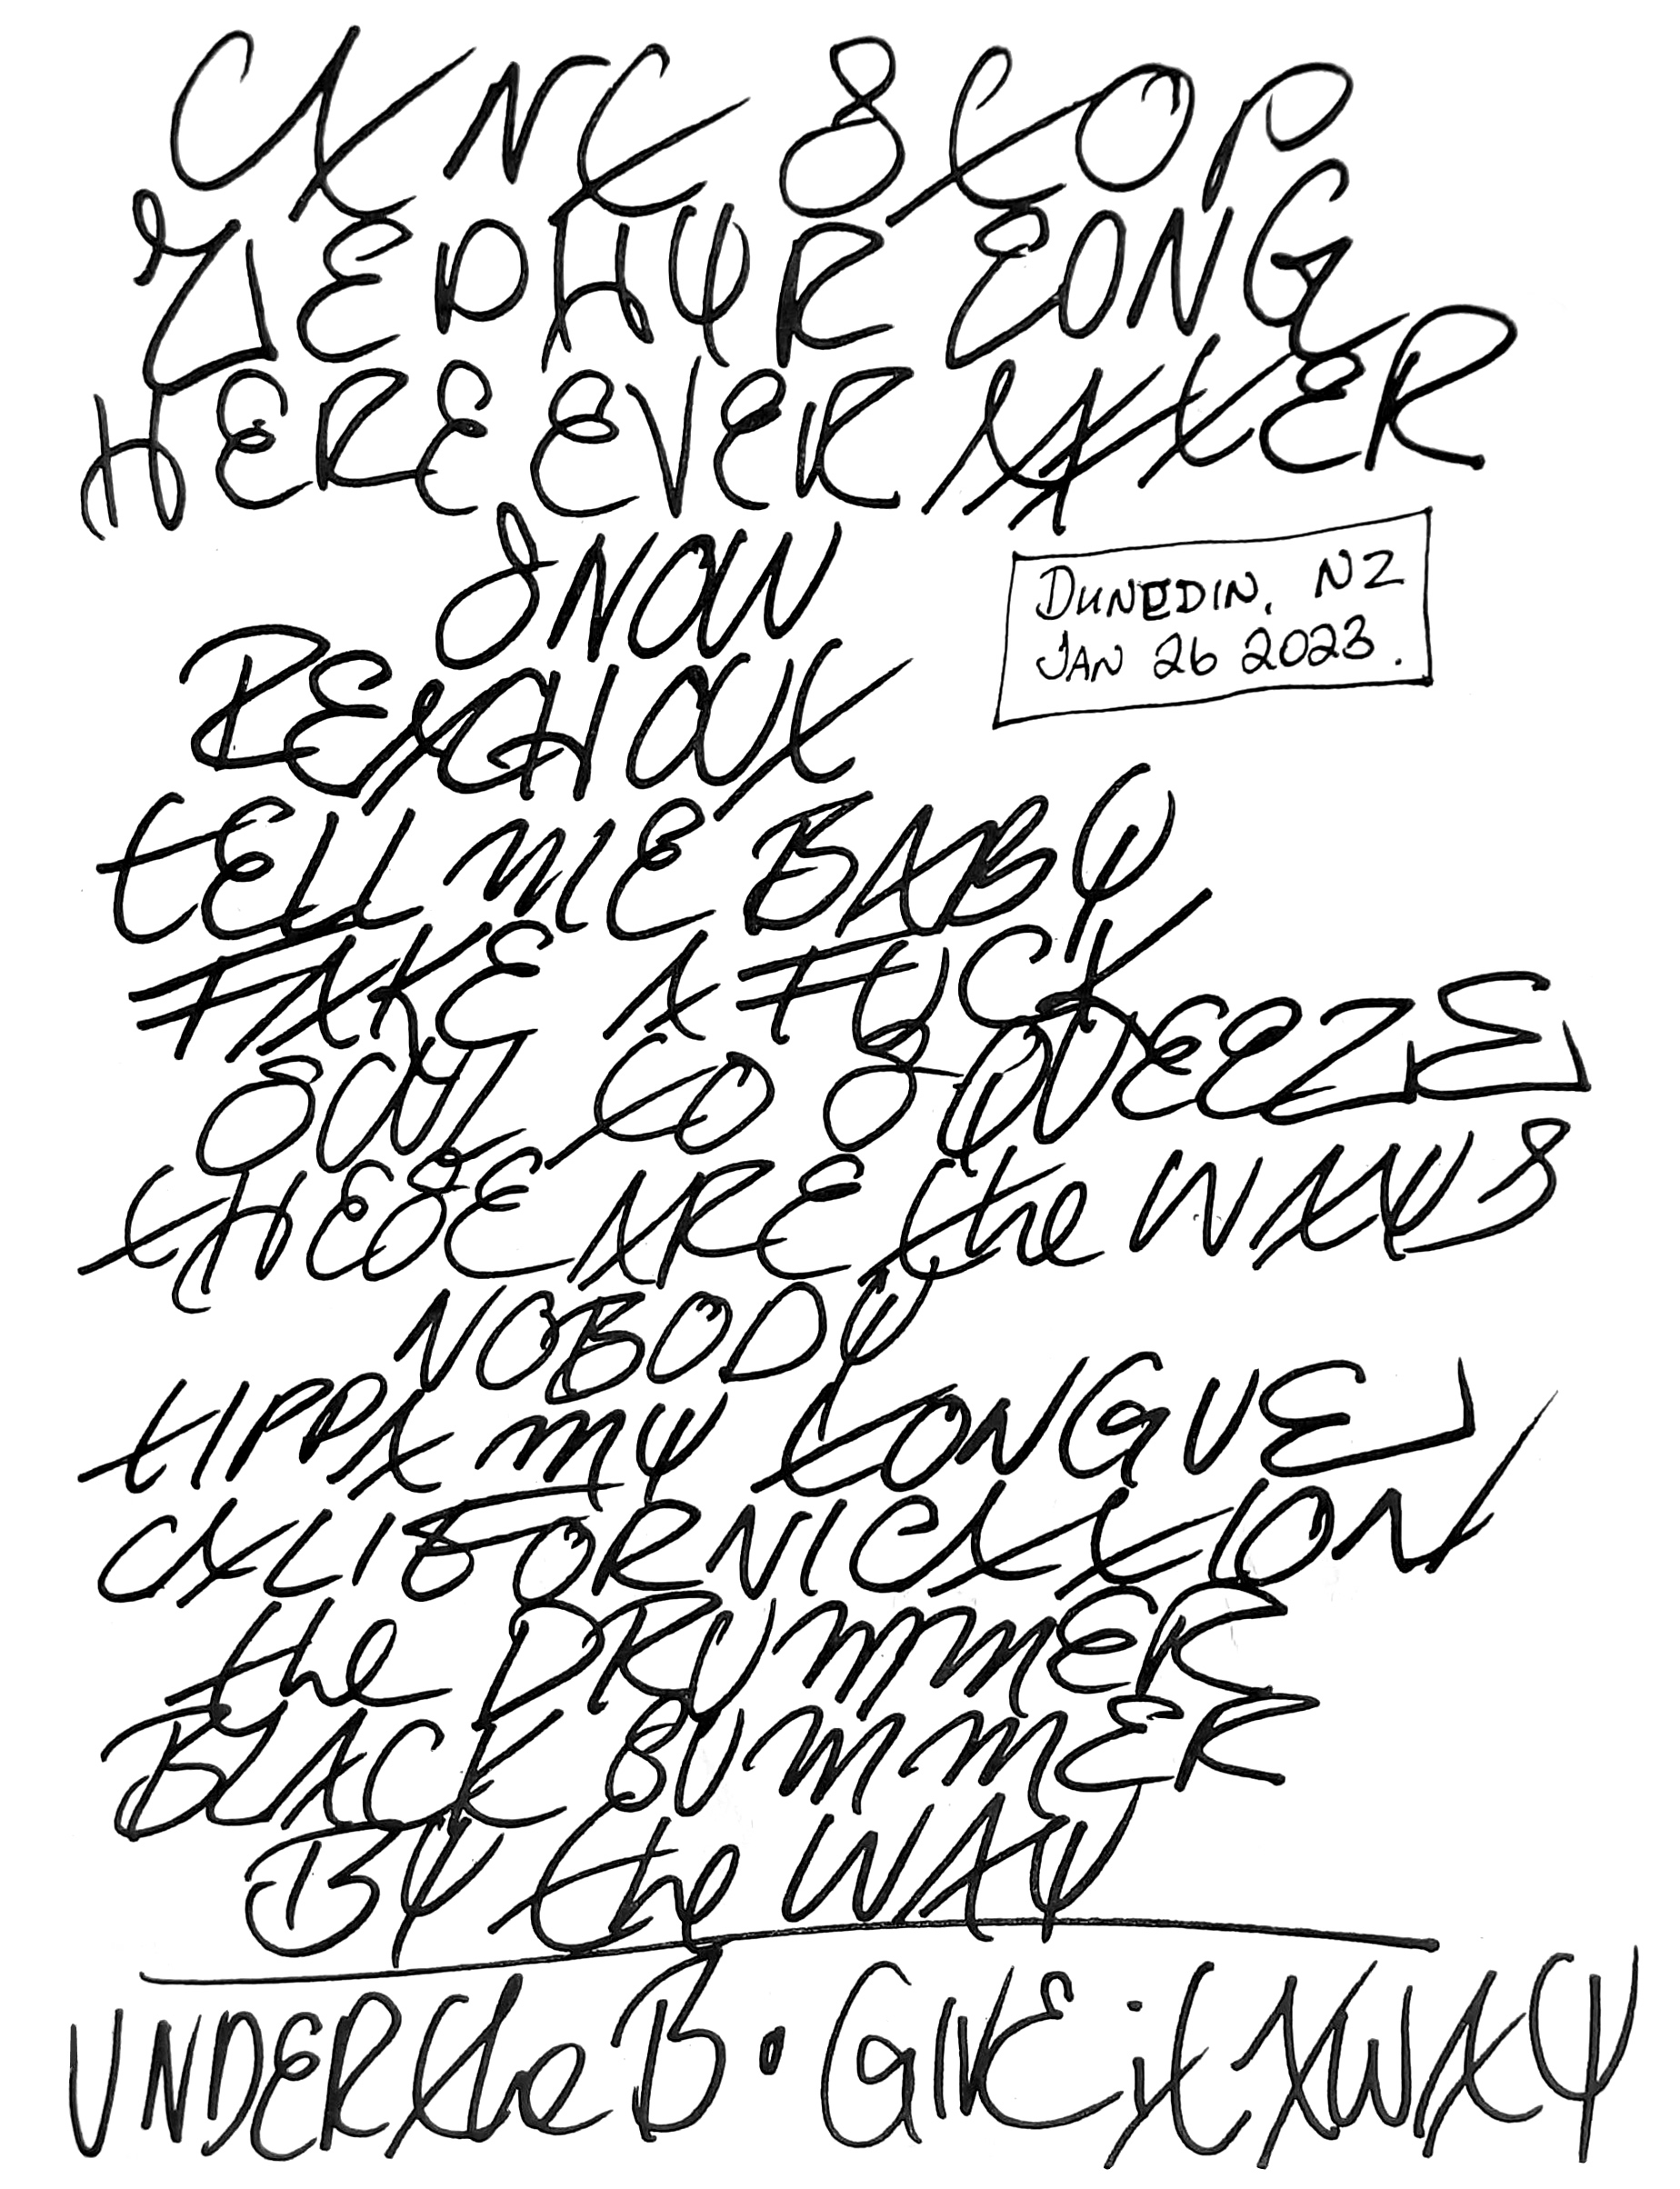 CANT STOP
ZEPHYR SONG
HERE EVER AFTER
SNOW
DUNEDIN, NZ
JAN 26 2023.
REACH OUT
TELL ME BABY
FAKE A FUCK
SOUL TO SQUEEZE
THESE ARE the WAYS
NOBODY
TIPPA MY TONGUE
CALIFORNICATION
the DRUMMER
BLACK SUMMER
BY the WAY
UNDER the B • GIVE it AWAY